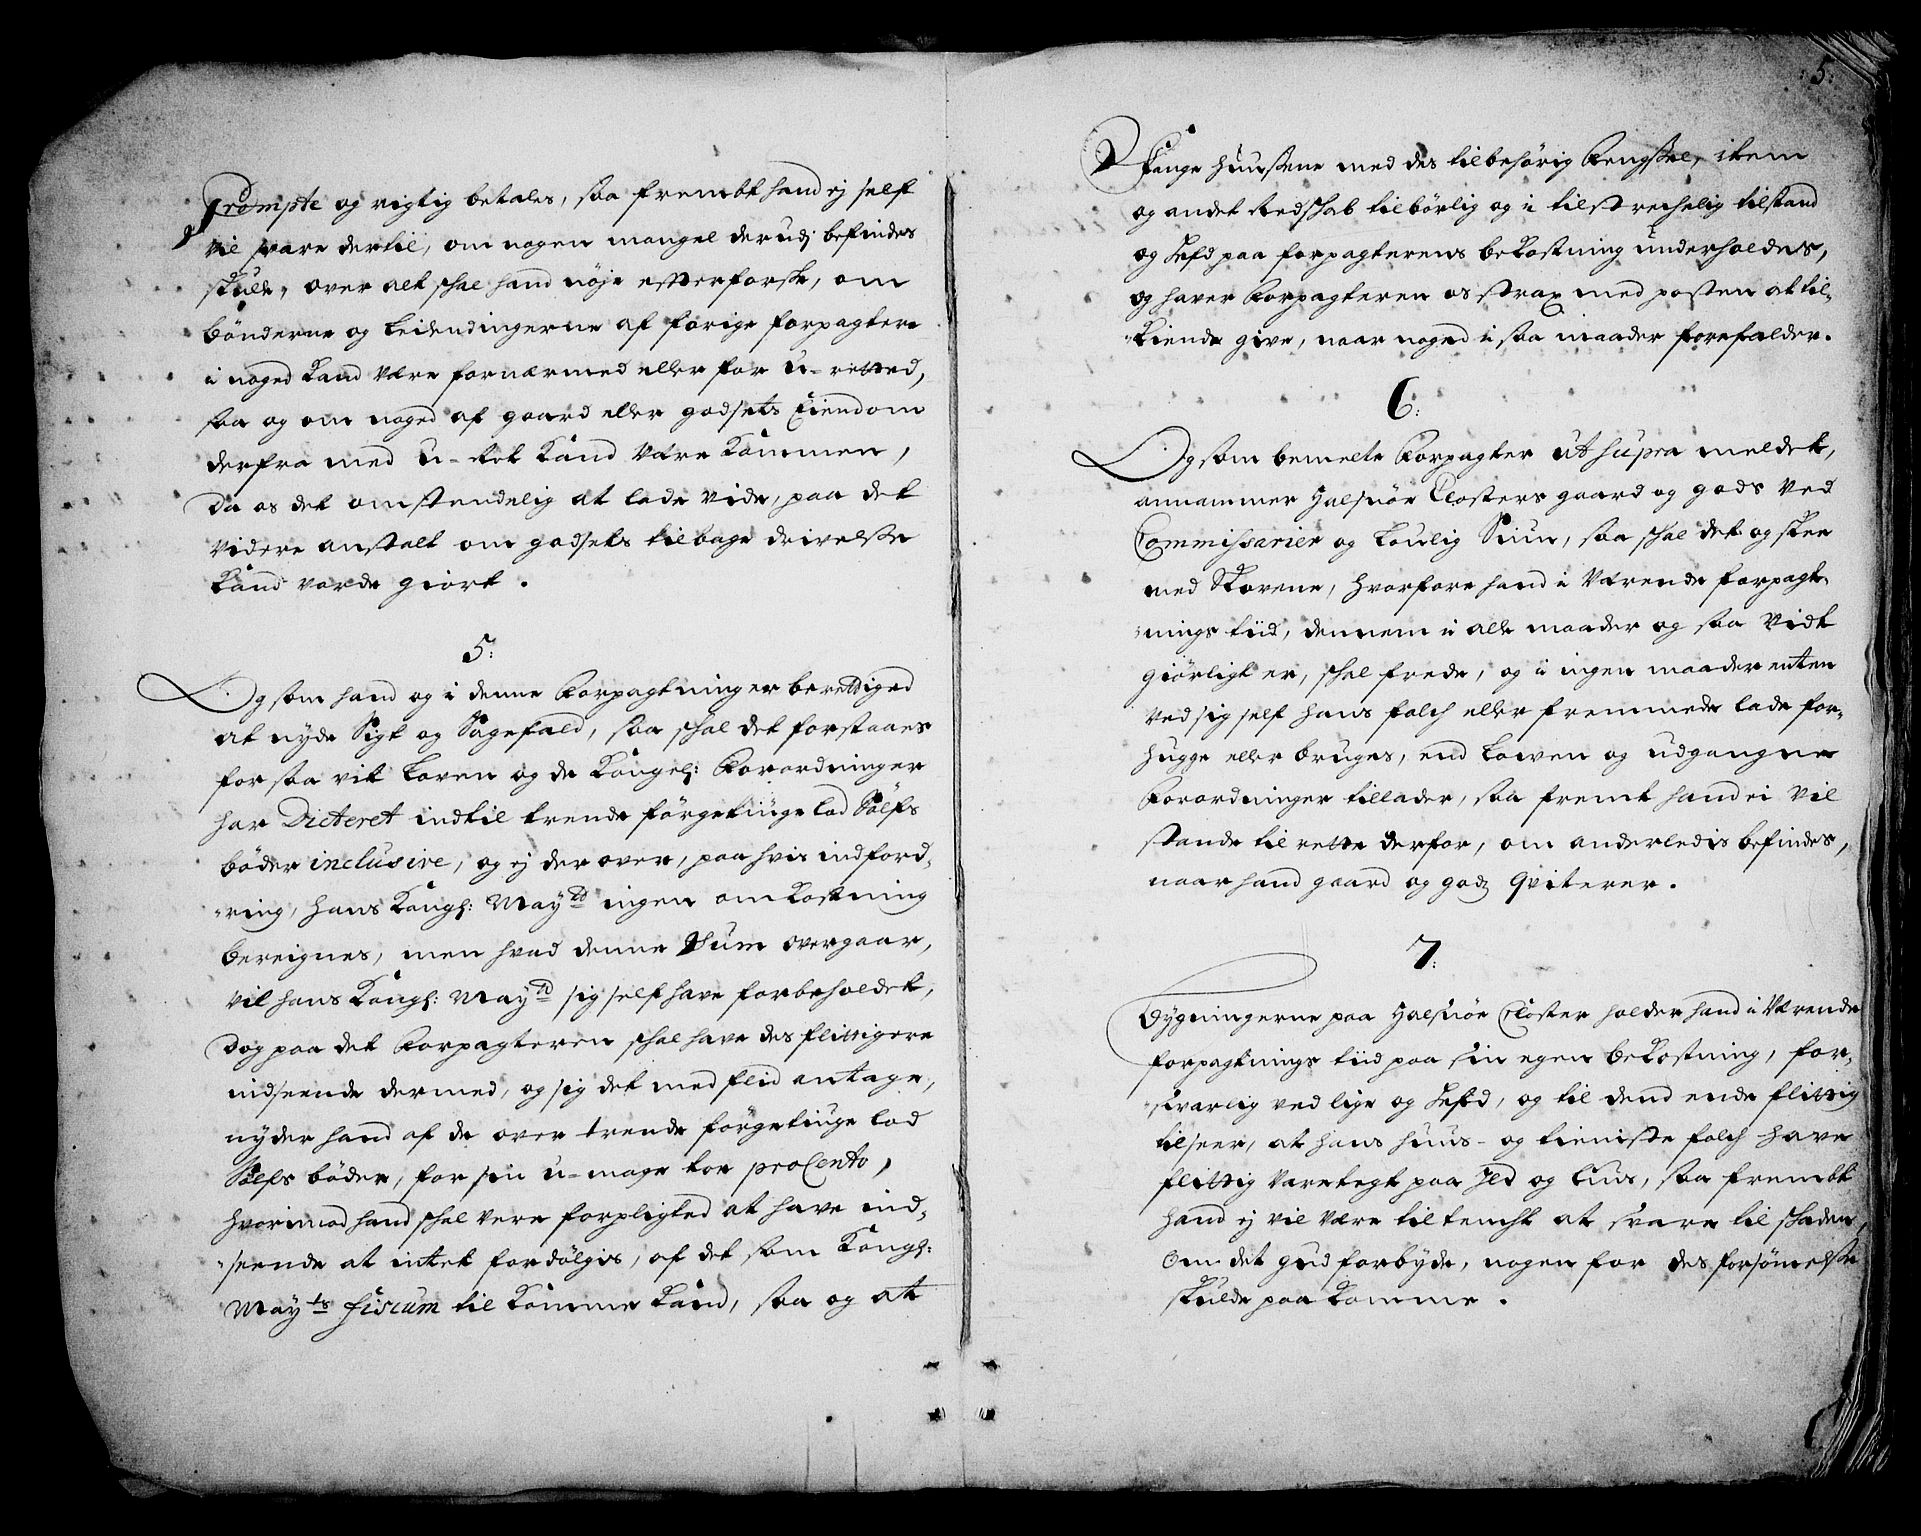 Prompte og rigtig betales, saa frembt hand ej self
vil svare dertil, om nogen mangel derudj befindes
skulle, over alt schal hand nöje efterforske, om
bönderne og Leilendingerne af forige forpagtere
i noged kand være fornærmed eller for u-retted,
saa og om noged af gaard eller godsets Eiendom
derfra med u-ret kand være kommen,
Da os det omstendelig at lade vide, paa det
videre anstalt om godsets tilbage drivelse
kand vorde giort.
5:
Og som hand og i denne Forpagtning er berettiged
at nyde Sigt og Sagefald, saa schal det forstaaes
for saa vit Loven og de Kongel: Forordninger
har Dicteret indtil trende förgetiuge lod Sölfs
böder inclusive, og ej der over, paa hvis indford-
-ring, hans Kongl: Mayᵗᵈ ingen omkostning
bereignes, men hvad denne Sum overgaar,
vil hans Kongl: Mayᵗᵈ sig self have forbeholdet,
Dog paa det Forpagteren schal have des flittigere
indseende dermed, og sig det med flid antage,
nyder hand af de over trende förgetiuge lod
Sölfs böder, for sin u-mage tor proCento,
hvorimod hand schal vere forpligted at have ind-
-seende at intet fordölgis, af det som Kongl:
Mayᵗˢ fiscum til komme kand, saa og at
:5:
Fange huussene med des tilbehörig Fengssel, item
og andet redschab tilbörlig og i tilstrechelig tilstand
og Hefd paa forpagterens bekostning underholdes,
og haver Forpagteren os strax med posten at til-
-kiende give, naar noged i saa maader forefalder.
6:
Og som bemelte Forpagter ut supra meldet,
annammer Halsnöe Closters gaard og gods ved
Commissarier og Loulig Siun, saa schal det og skee
med Skovene, hvorfore hand i værende forpagt-
-nings tiid, dennem i alle maader og saa vidt
giörligt er, schal frede, og i ingen maader enten
ved sig self hans folch eller fremmede lade for-
hugge eller bruges, end Lowen og udgangne
Forordninger tillader, saa fremt hand ei vil
stande til rette derfor, om anderledis befindes,
naar hand gaard og godz qviterer.
7:
Bygningerne paa Halsnöe Closter holder hand i værende
forpagtnings tiid paa sin egen bekostning, for-
-svarlig ved lige og Hefd, og til dend ende flittig
tilseer, at hans huus- og tieniste folch have
flittig varetegt paa Ild og Lius, saa frembt
hand ej vil være tiltencht at svare til schaden,
Om det gud forbyde, nogen for des forsömelse
skulde paa komme.